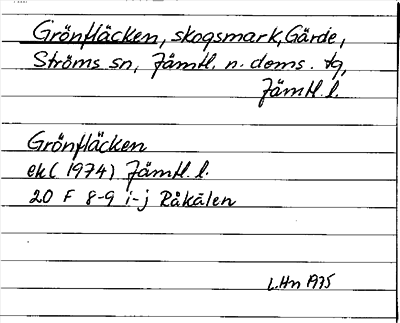 Grönfläcken, skogsmark, Gärde,
Ströms sn, Jämtl. n. doms. tg,
Jämtl. l.
Grönfläcken
ek (1974) Jämtl. l.
20 F 8-9 i-j Råkälen
L.Hn 1975